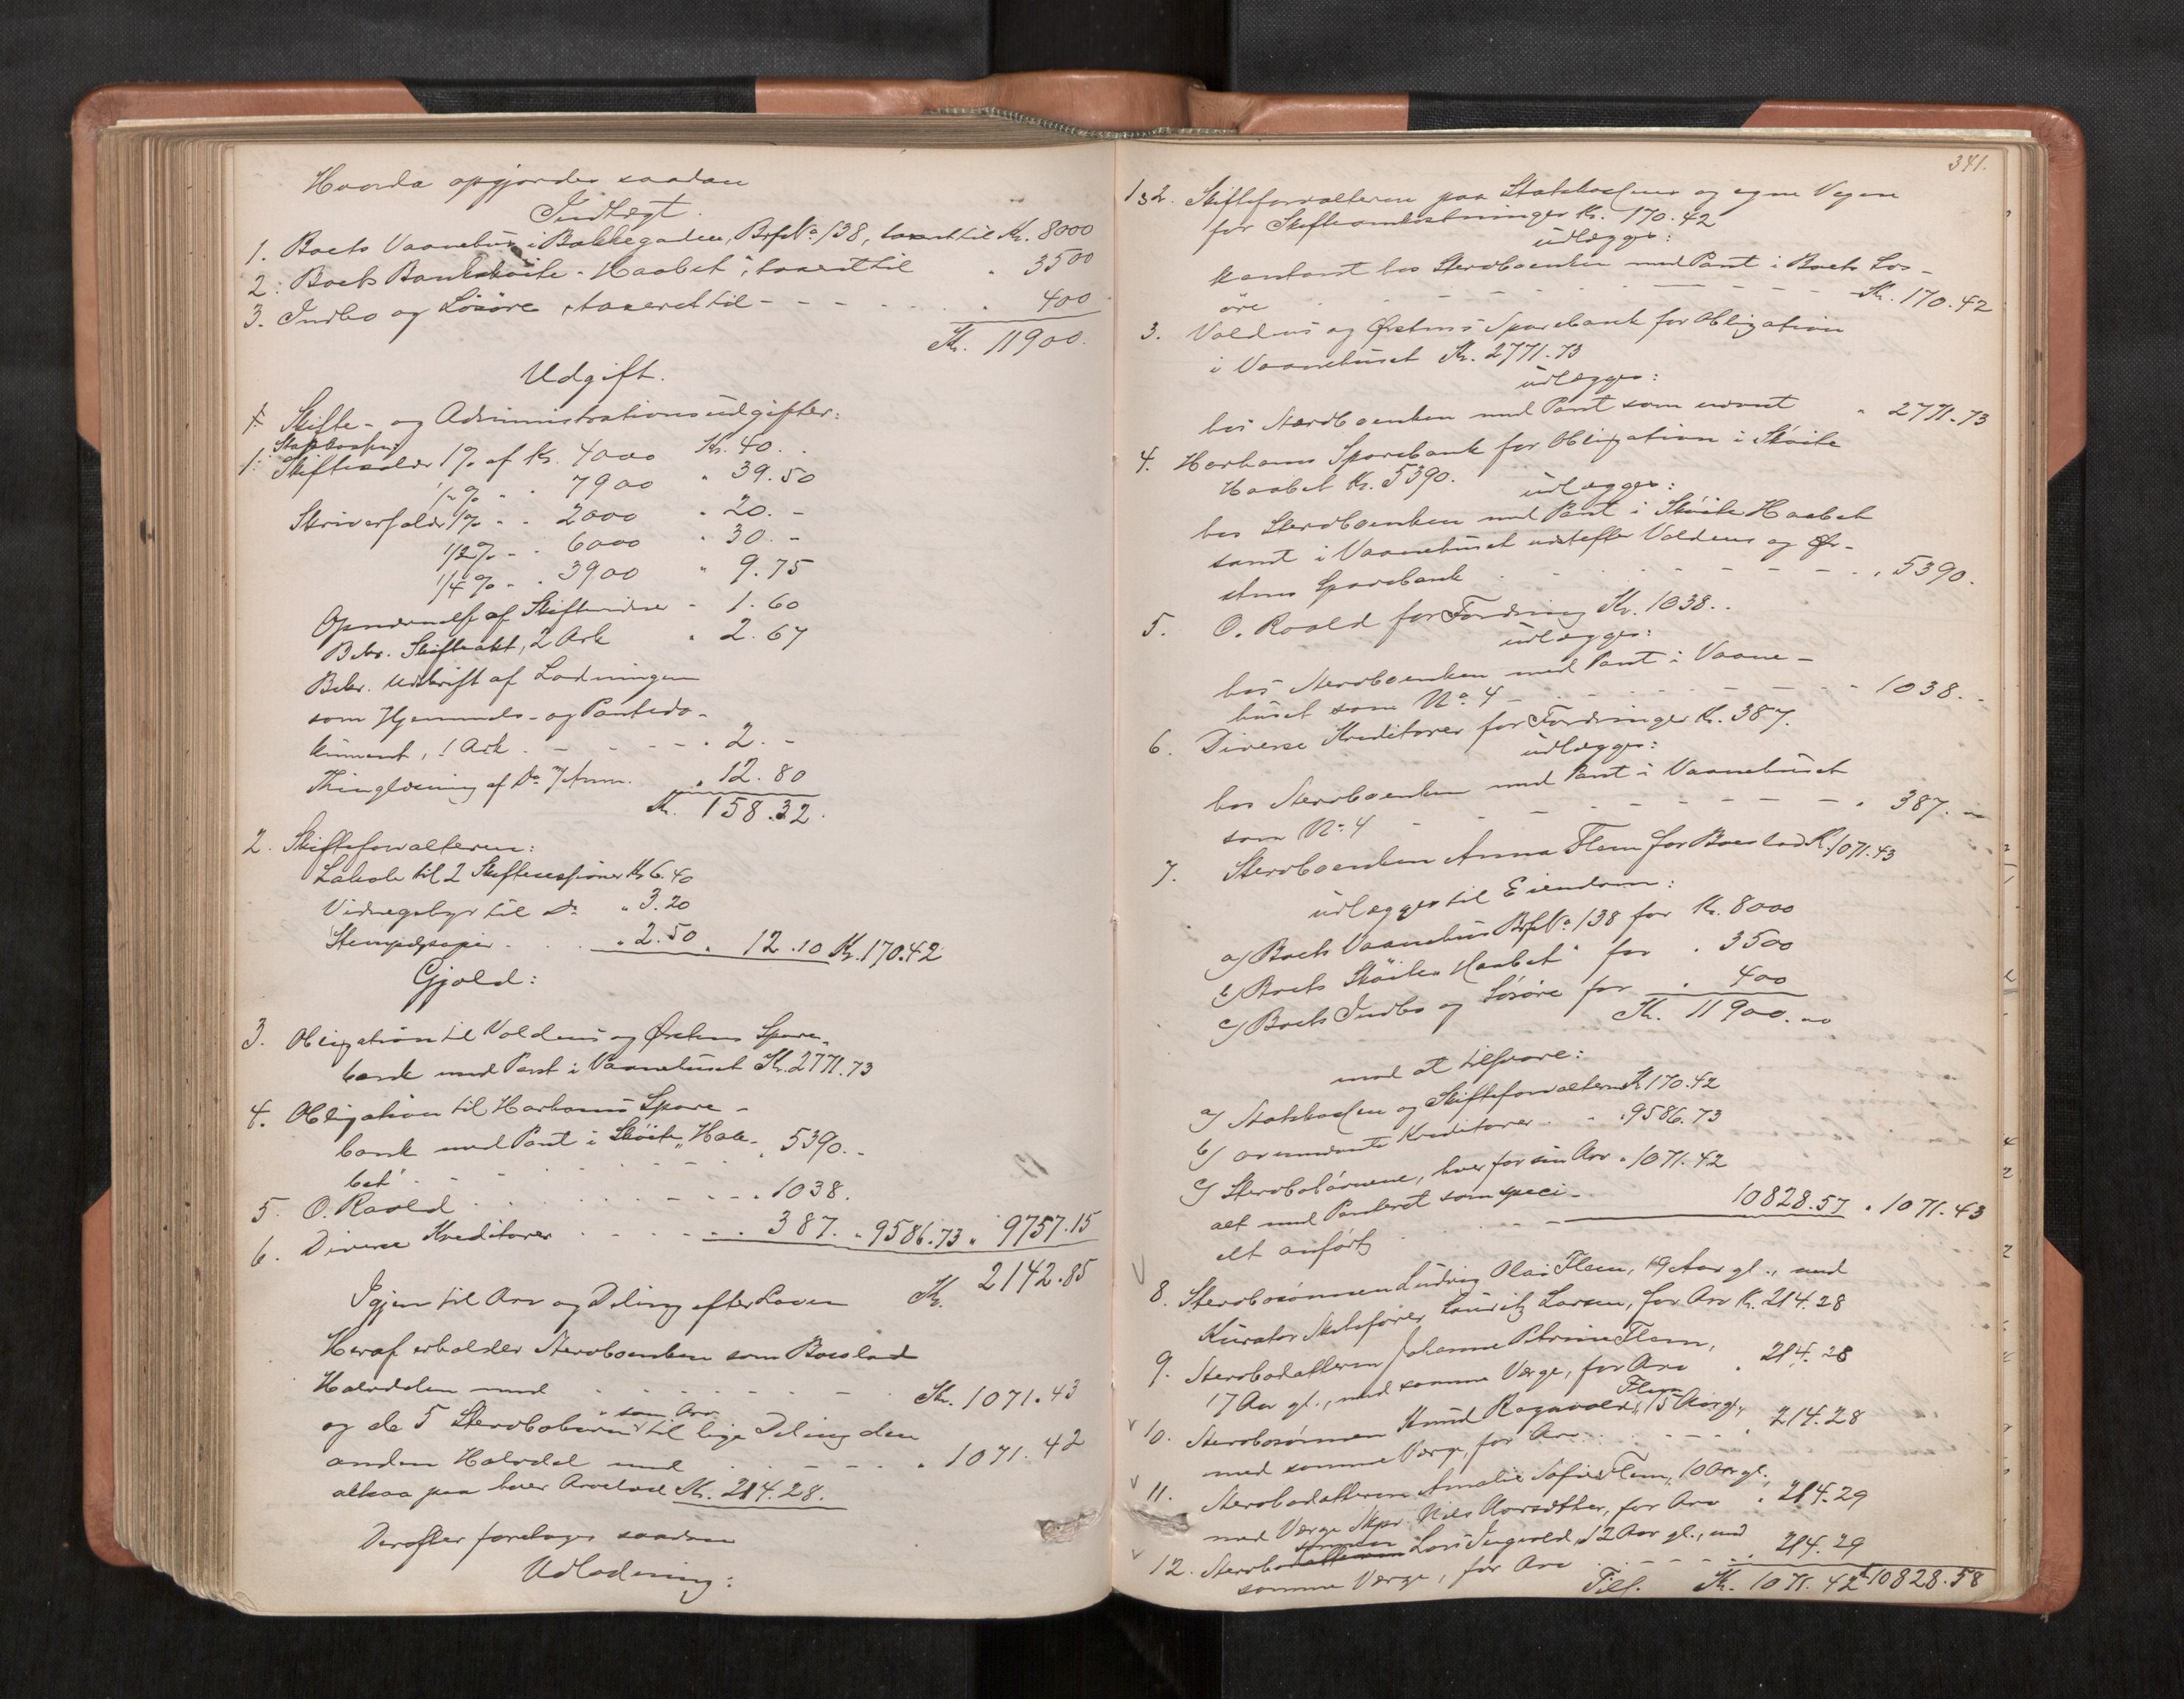 Hvorda opgjordes saadan
Indtægt.
1. Boets Vaanehus i Bakkegaden, BrfNo 138, taxert til Kr. 8000
2. Boets Bankskøite "Haabet", taxert til " 3500
3. Indbo og Løsøre, taxeret til - - - - " 400
Kr. 11900.
Udgift.
Skifte- og Administrationsudgifter:
Statskassen
1. Skiftesalær 1% af Kr. 4000 Kr. 40. -
1/2% " " 7900 " 39.50
Skriversalær 1% " " 2000 " 20. -
1/2% " " 6000 " 30. -
1/4% " " 3900 " 9.75
Opnævnelse af Skiftevidne " 1.60
Bebr. Skifteakt, 2 Ark " 2.67
Bebr. Udskrift af Lodningen
som Hjemmels- og Pantedo-
kument, 1 Ark . - - - - " 2. -
Thinglæsning af Do m/Anm. " 12.80
Kr. 158.32.
2. Skifteforvalteren:
Lokale til 2 Skiftesessioner Kr 6.40
Vidnegebyr til Do " 3.20
Stempelpapir . . " 2.50 " 12.10 Kr. 170.42
Gjæld:
3. Obligation til Voldens og Ørstens Spare-
bank med Pant i Vaanehuset Kr. 2771.73
4. Obligation til Harhams Spare-
bank med Pant i Skøite "Haa- " 5390. -
bet" - - -
5. O. Roald . . . . - - - " 1038.
6. Diverse Kreditorer . . . - - " 387. " 9586.73 " 9757.15
Igjen til Arv og Deling efter Loven Kr. 2142.85
Heraf erholder Stervboenken som Boeslod
Halvdelen med . . . . - - - . Kr. 1071.43
og de 5 Stervbobørn som Arv til lige Deling den
anden Halvdel med . . - - - " 1071.42
altsaa paa hver Arvelod Kr. 214.28.
Derefter foretages saadan
Udlodning:
341.
1 & 2. Skifteforvalteren paa Statskassens og egne Vegne
for Skifteomkostninger Kr. 170.42
udlægges:
kontant hos Stervboenken med Pant i Boets Løs-
øre . - - - - - - - - Kr. 170.42
3. Voldens og Ørstens Sparebank for Obligation
i Vaanehuset Kr. 2771.73
udlægges:
hos Stervboenken med Pant som nævnt " 2771.73
4. Harhams Sparebank for Obligation i Skøite
Haabet Kr. 5390.
udlægges:
hos Stervboenken med Pant i Skøite Haabet
samt i Vaanehuset næstefter Voldens og Ør-
stens Sparebank . - - - - - - - " 5390.
5. O. Roald for Fordring Kr. 1038. -
udlægges:
hos Stervboenken med Pant i Vaane-
huset som No 4 - - - - - - - - 1038. -
6. Diverse Kreditorer for Fordringer Kr. 387.
udlægges:
hos Stervboenken med Pant i Vaanehuset
som No 4 - - - - - - " 387. "
7. Stervboenken Anna Flem for Boeslod Kr. 1071.43
udlægges til Eiendom:
a) Boets Vaanehus BrfNo 138 for Kr. 8000
b) Boets Skøite "Haabet" for " 3500
c) Boets Indbo og Løsøre for " 400
Kr. 11900.00
mod at tilsvare:
a) Statskassen og Skifteforvalteren Kr. 170.42
b) ovennævnte Kreditorer - . " 9586.73
c) Stervbobørnene, hver for sin Arv " 1071.42
alt med Panteret som speci- 10828.57 " 1071.43
elt anført
8. Stervbosønnen Ludvig Olai Flem, 19 Aar gl., med
Kurator Skibsfører Lauritz Larsen, for Arv Kr. 214.28
9. Stervbodatteren Johanne Petrine Flem,
17 Aar gl., med samme Værge, for Arv " 214.28
10. Stervbosønnen Knud Ragnvald Flem, 15 Aar gl.,
med samme Værge, for Arv . . - - - " 214.28
11. Stervbodatteren Amalie Sofie Flem, 10 Aar gl.
med Værge Skpr. Nils Aarsæther, for Arv " 214.29
12. Stervbosønnen Lars Ingvald, 12 Aar gl., med
samme Værge, for Arv . . - - - " 214.29
Tils. Kr. 1071.42 Kr. 10828.58